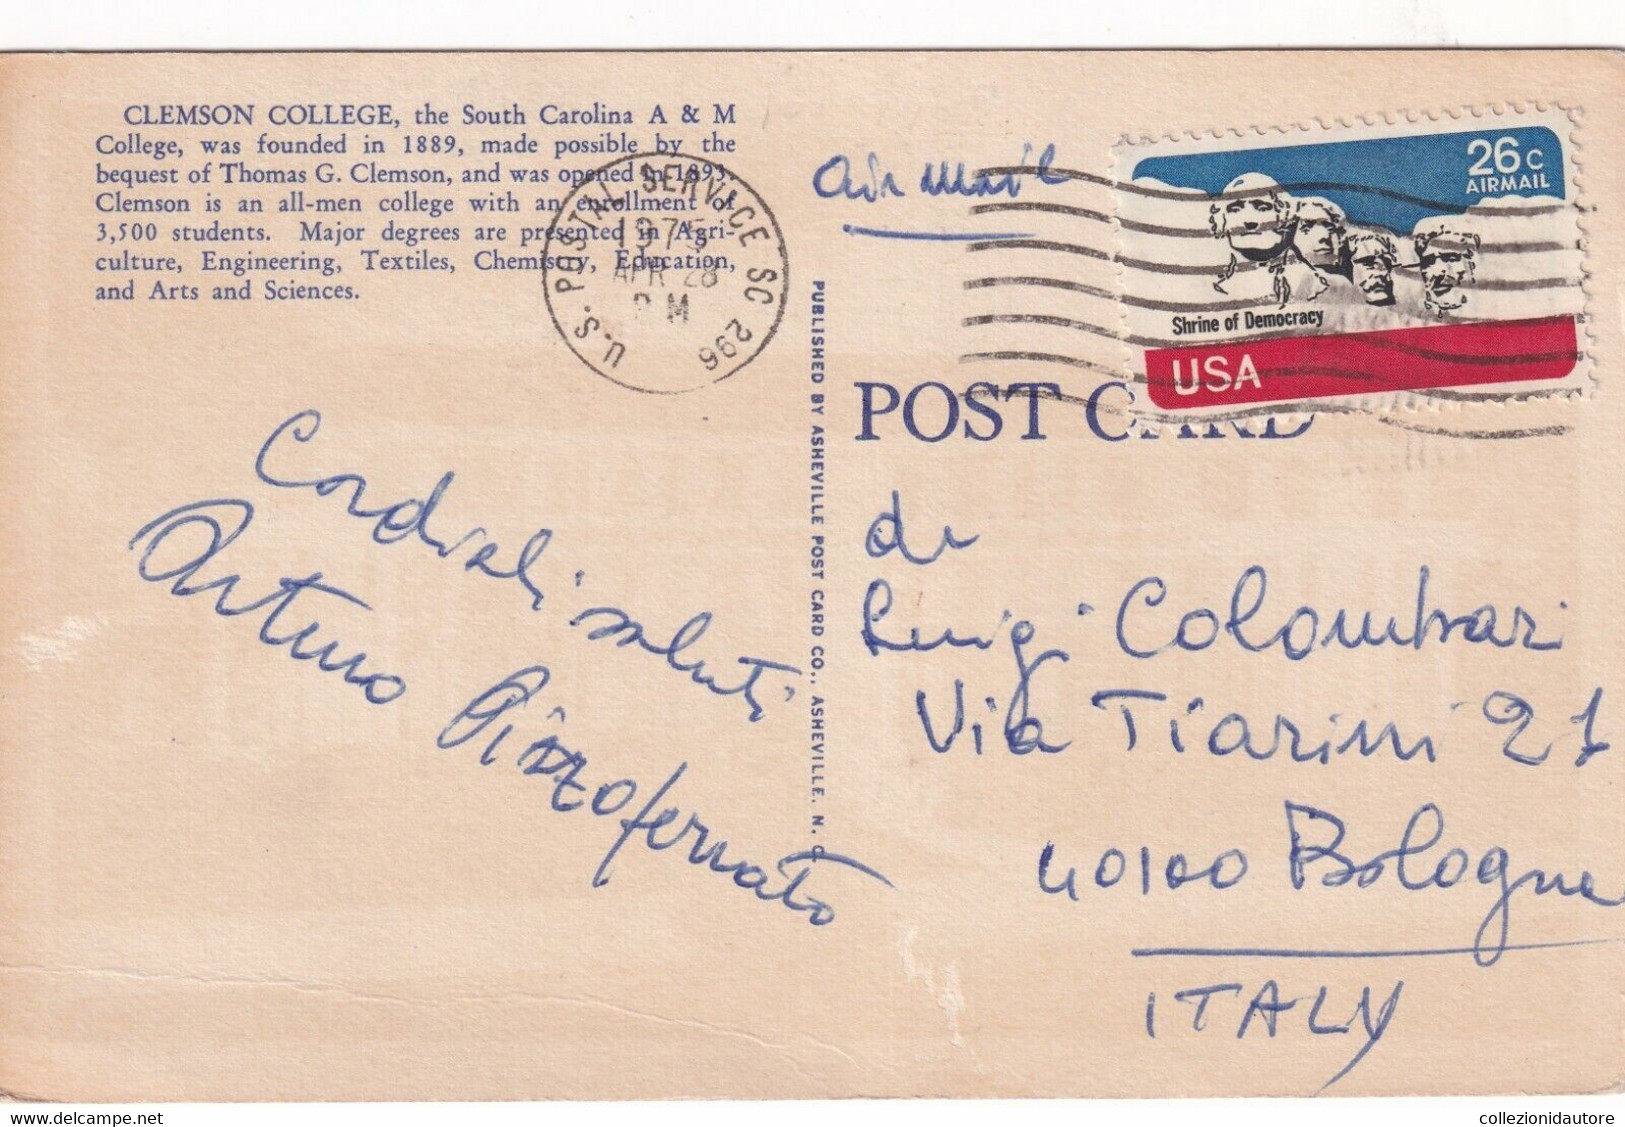 CLEMSON COLLEGE, the South Carolina A & M
College, was founded in 1889, made possible by the
bequest of Thomas G. Clemson, and was opened in 1893.
Clemson is an all-men college with an enrollment of
3,500 students. Major degrees are presented in Agri-
culture, Engineering, Textiles, Chemistry, Education,
and Arts and Sciences.
U.S. POSTAL SERVICE SC 296
1975
APR 28
PM
air mail
26c
AIRMAIL
Shrine of Democracy
USA
POST CARD
PUBLISHED BY ASHEVILLE POST CARD CO., ASHEVILLE, N. C.
Cordiali saluti
Arturo Pizzofernato
Luigi Colombari
Via Tiarini 21
40100 Bologna
ITALY
delcampe.net
collezionidautore